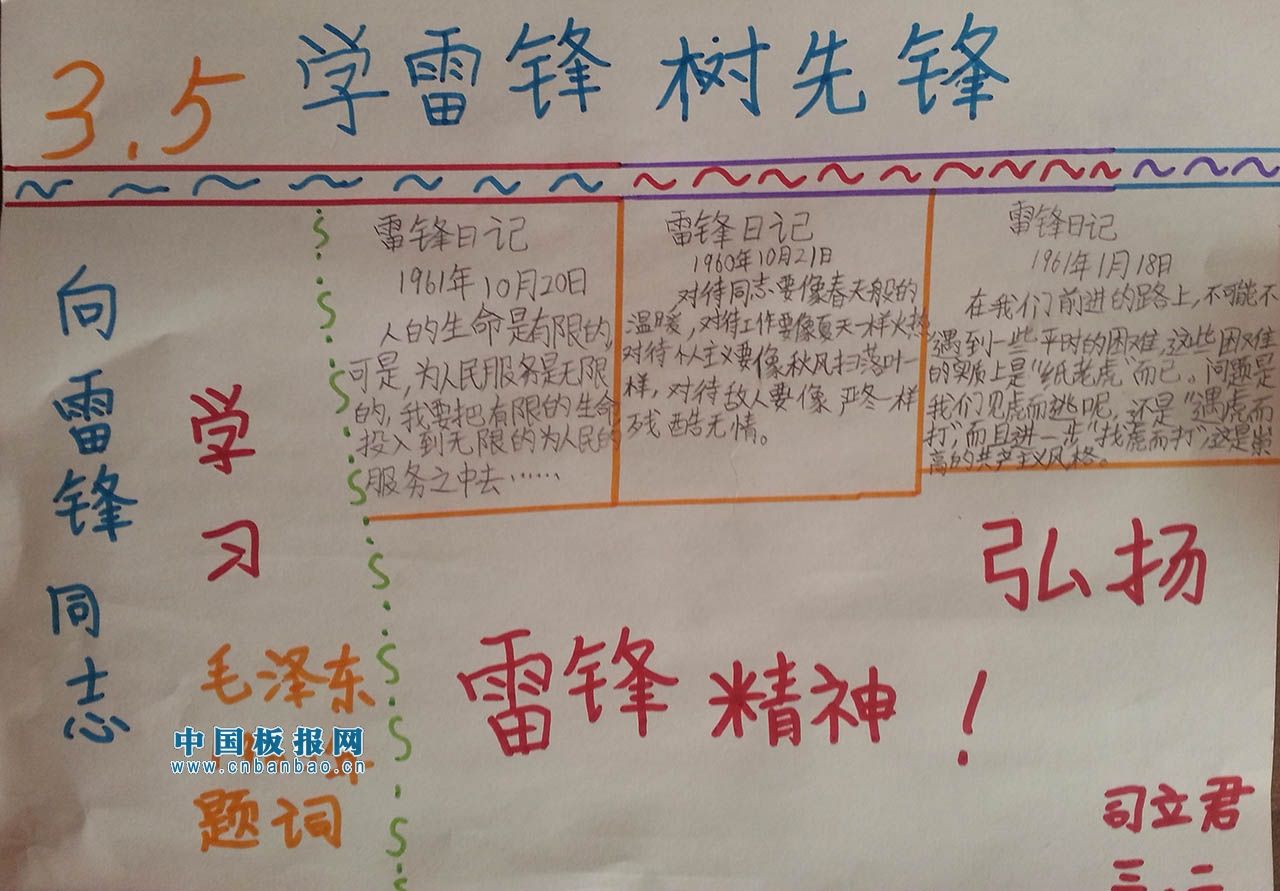 3.5 学雷锋 树先锋
向雷锋同志
学习
毛泽东
年
题词
雷锋日记
1961年10月20日
人的生命是有限的,
可是,为人民服务是无限
的,我要把有限的生命
投入到无限的为人民的
服务之中去……
雷锋日记
1960年10月21日
对待同志要像春天般的
温暖,对待工作要像夏天一样火热
对待个人主义要像秋风扫落叶一
样,对待敌人要像严冬一样
残酷无情。
雷锋日记
1961年1月18日
在我们前进的路上,不可能不
遇到一些平时的困难,这些困难
的实质上是“纸老虎”而已。问题是
我们见虎而逃呢,还是“遇虎而
打”,而且进一步“找虎而打”,这是崇
高的共产主义风格。
弘扬
雷锋精神!
司立君
三.二
中国板报网
www.cnbanbao.cn